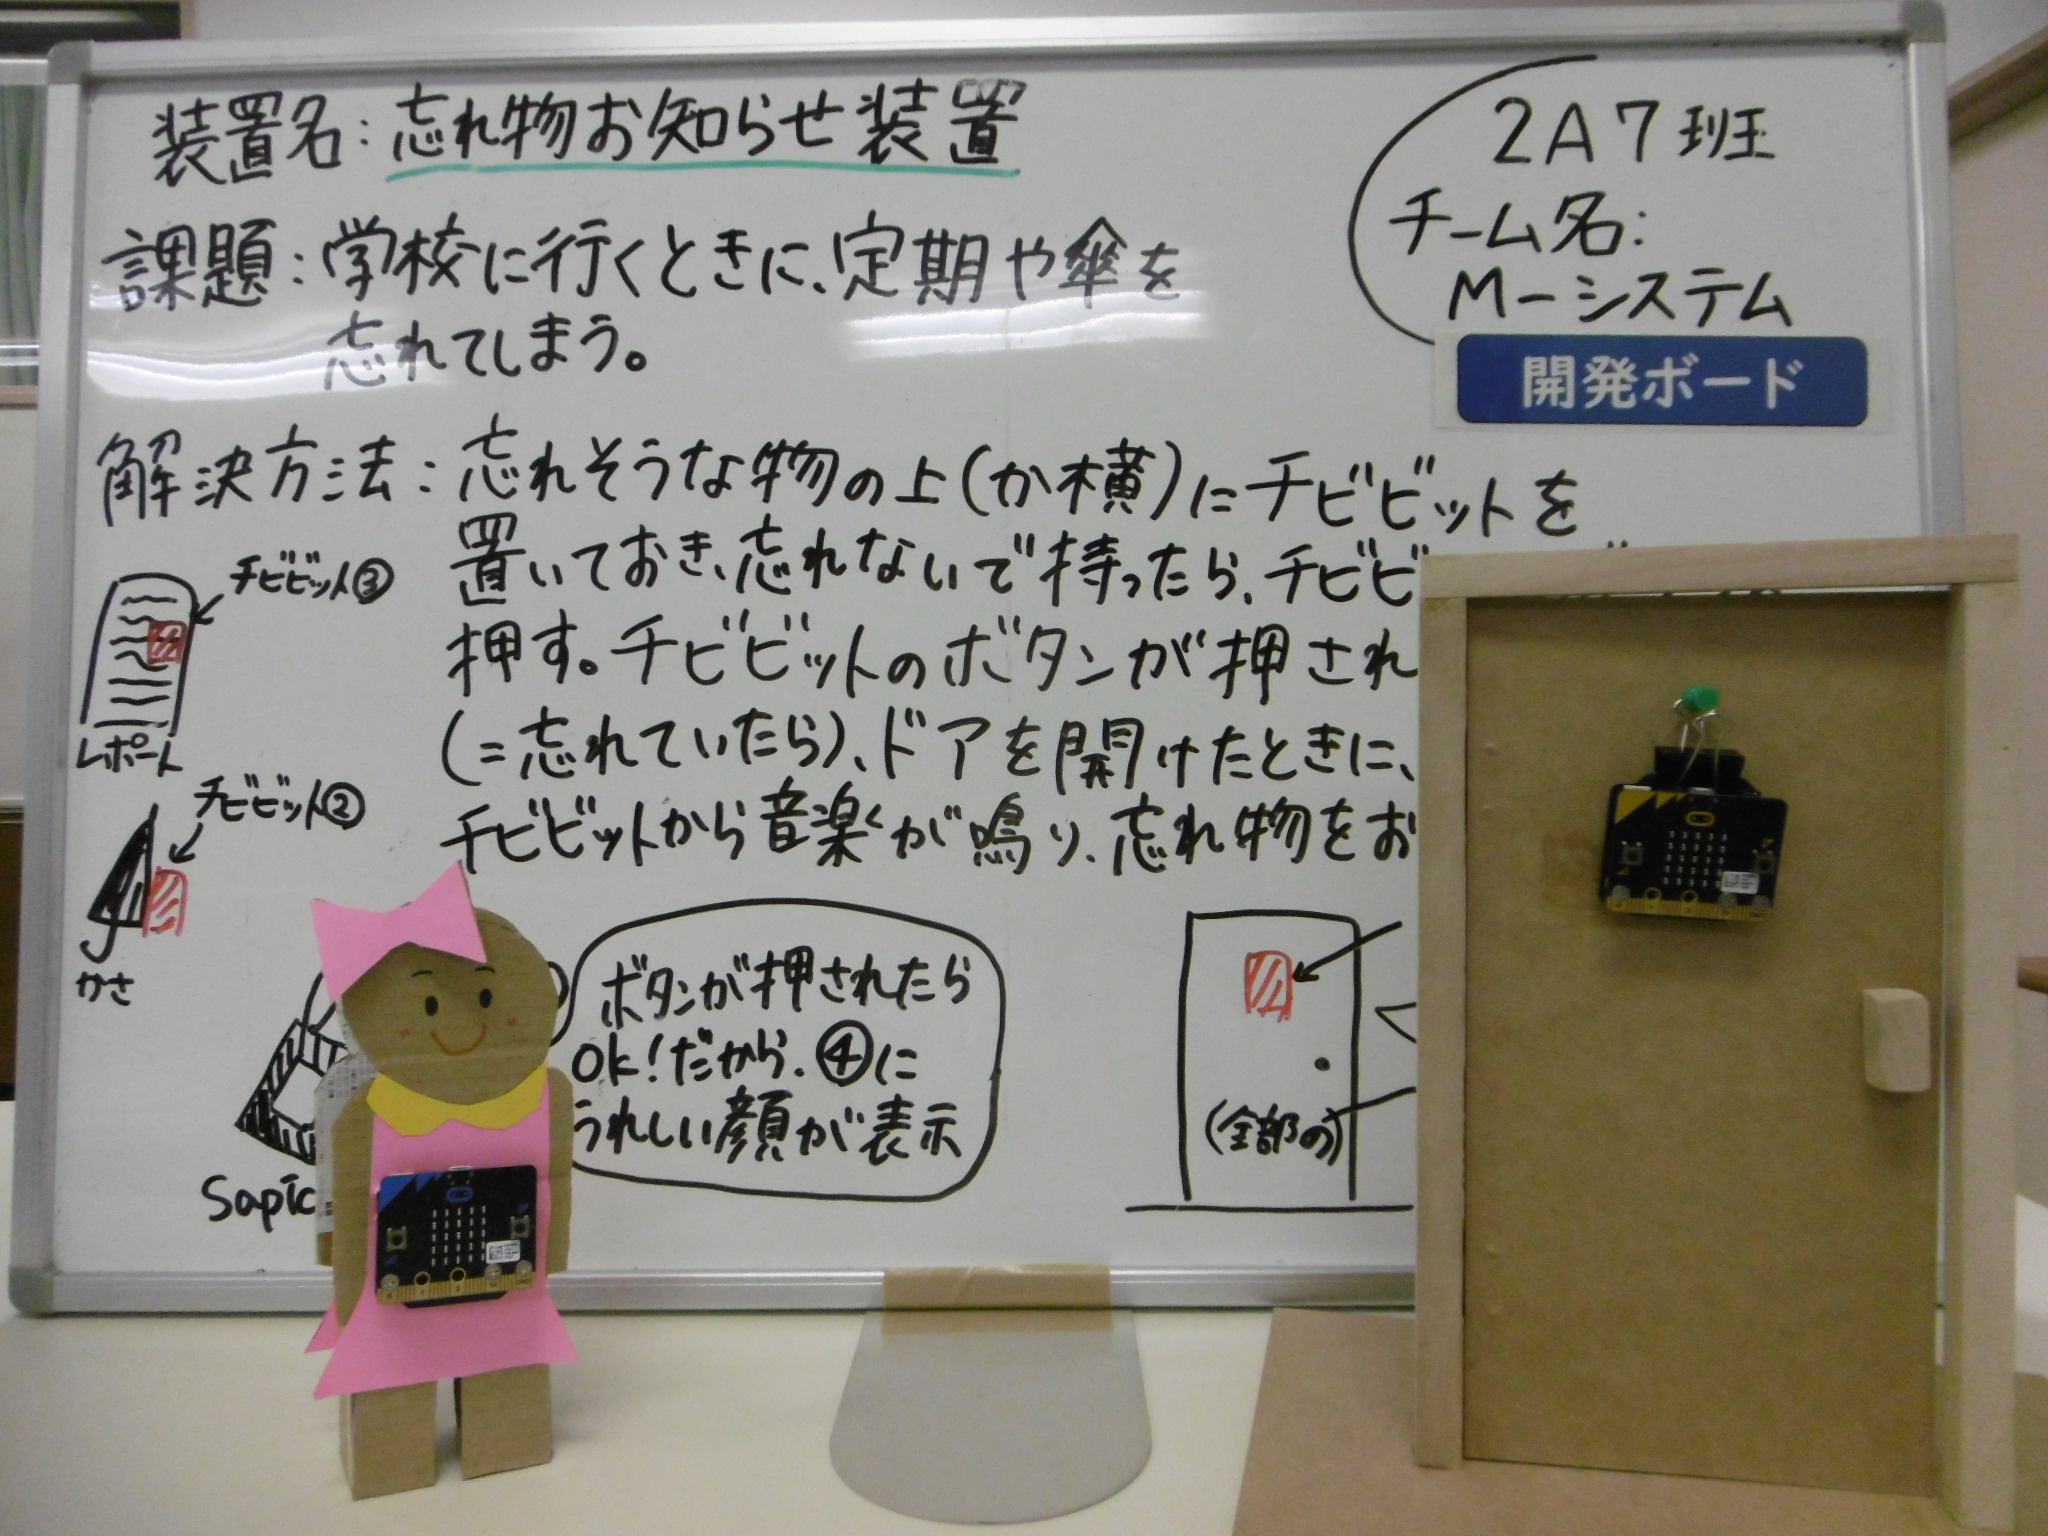 装置名：忘れ物お知らせ装置
2A7班
チーム名：
M－システム
開発ボード
課題：学校に行くときに、定期や傘を
忘れてしまう。
解決方法：忘れそうな物の上（か横）にチビビットを
置いておき、忘れないで持ったら、チビビ
押す。チビビットのボタンが押され
（＝忘れていたら）、ドアを開けたときに、
チビビットから音楽が鳴り、忘れ物をお
チビビット③
レポート
チビビット②
かさ
Sapic
ボタンが押されたら
OK！だから、④に
うれしい顔が表示
（全部の）